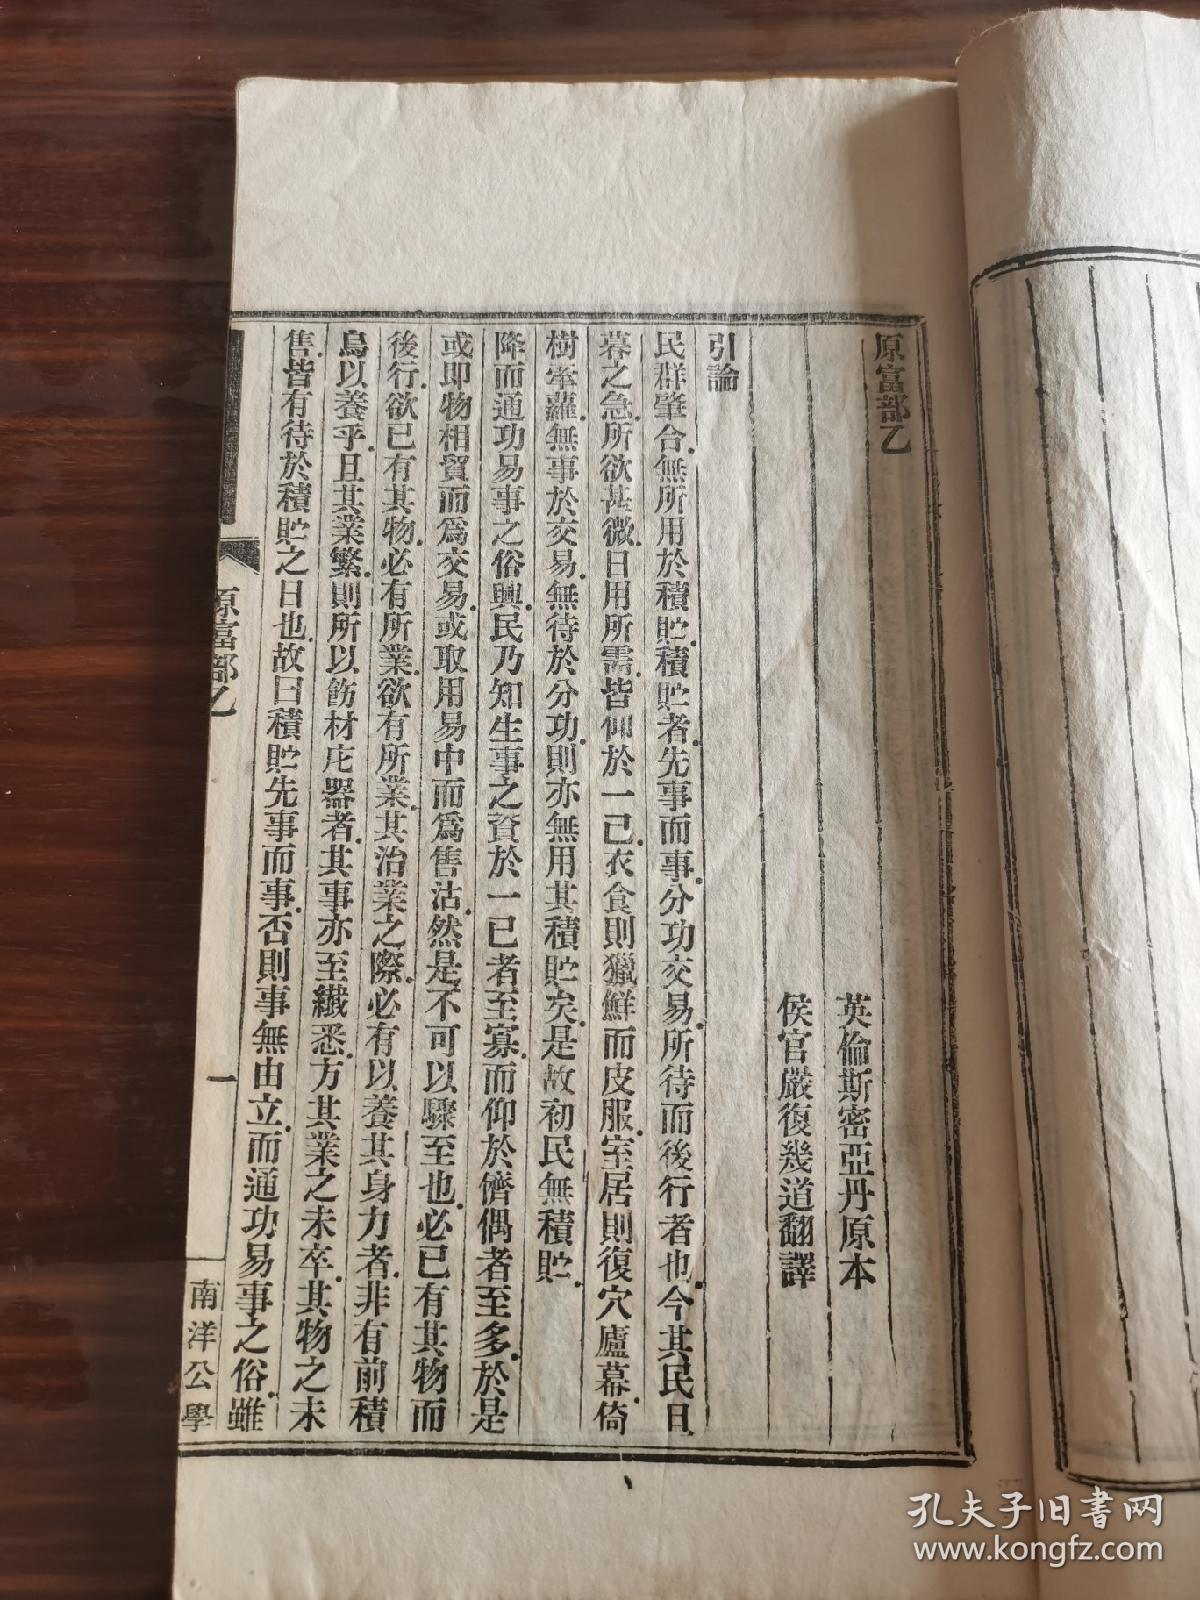 原富部乙
英倫斯密亞丹原本
侯官嚴復幾道翻譯
引論
民群肇合.無所用於積貯.積貯者.先事而事.分功交易.所待而後行者也.今其民日
暮之急.所欲甚微.日用所需.皆仰於一己.衣食則獵鮮而皮服.室居則復穴廬幕.倚
樹牽蘿.無事於交易.無待於分功.則亦無用其積貯矣.是故初民無積貯.
降而通功易事之俗興.民乃知生事之資於一已者至寡.而仰於儕偶者至多.於是
或即物相貿而爲交易.或取用易中而爲售沽.然是不可以驟至也.必已有其物而
後行.欲已有其物.必有所業.欲有所業.其治業之際.必有以養其身力者.非有前積
烏以養乎.且其業繁.則所以飭材庀器者.其事亦至纖悉.方其業之未卒.其物之未
售.皆有待於積貯之日也.故曰積貯先事而事.否則事無由立.而通功易事之俗.雖
原富部乙
一
南洋公學
孔夫子旧书网
www.kongfz.com